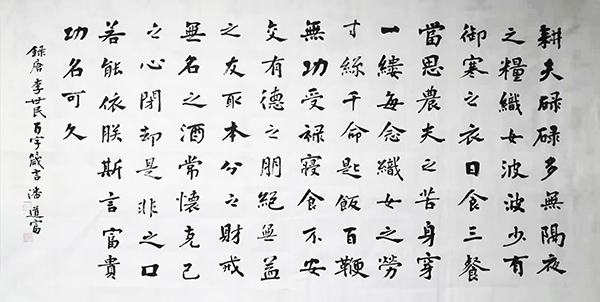 耕夫碌碌多無隔夜
之糧織女波波少有
御寒之衣日食三餐
當思農夫之苦身穿
一縷每念織女之勞
寸絲千命匙飯百鞭
無功受禄寢食不安
交有德之朋絕無益
之友取本分之財戒
無名之酒常懷克己
之心閉却是非之口
若能依朕斯言富貴
功名可久
録唐李世民百字箴言潘道富